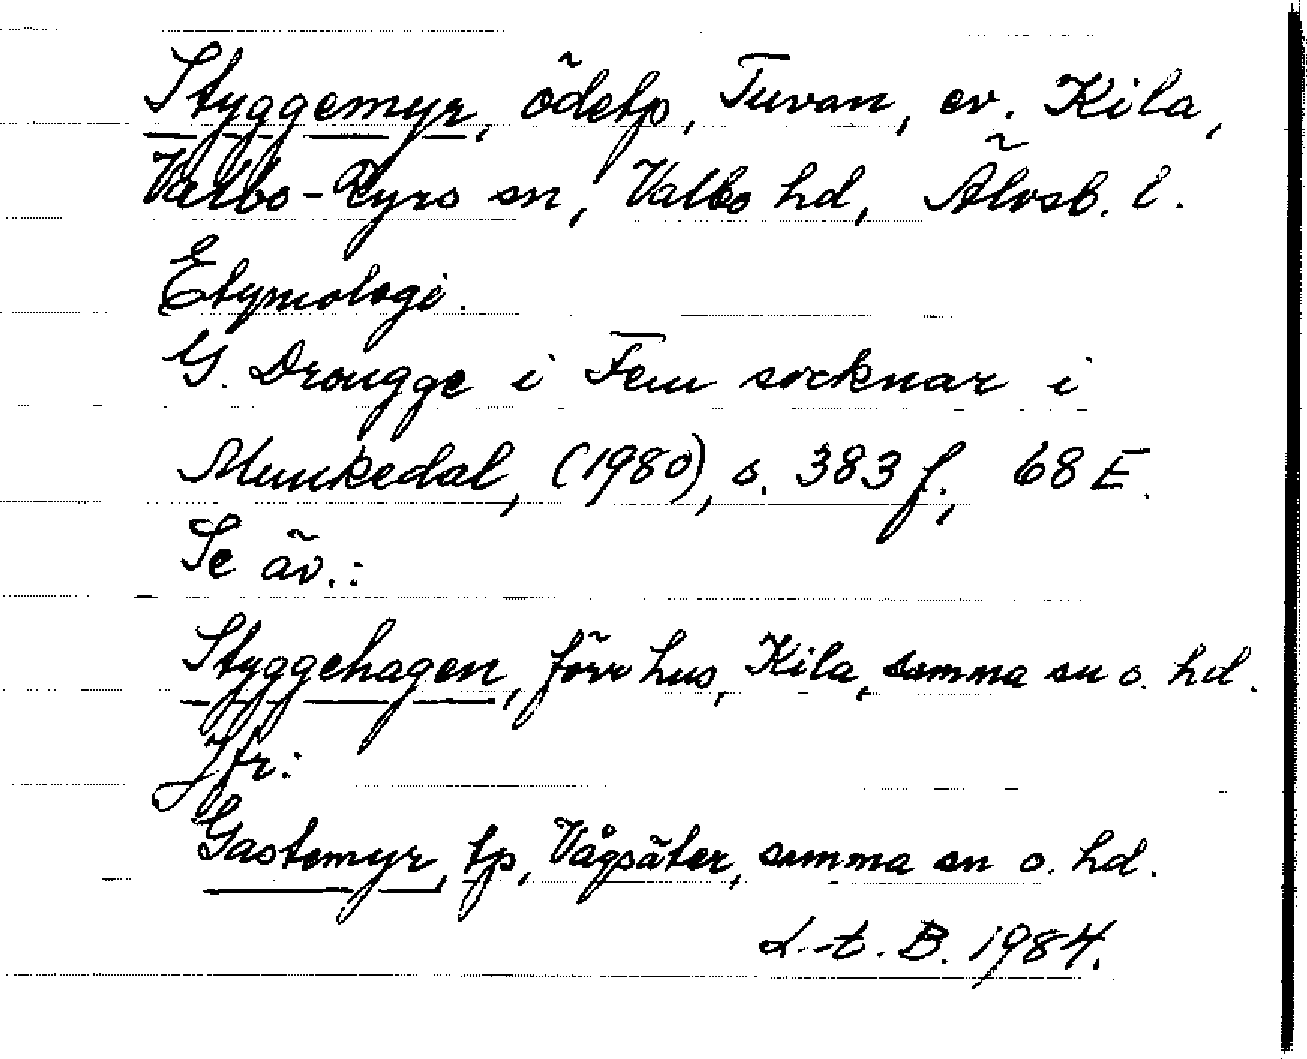 Styggemyr, ödetp, Tuvan, ev. Kila,
Valbo-Ryrs sn, Valbo hd, Älvsb. l.
Etymologi.
G. Drougge i Fem socknar i
Munkedal, (1980), s. 383 f., 68 E.
Se äv.:
Styggehagen, förr hus, Kila, samma sn o. hd.
Jfr:
Gastemyr, tp, Vågsäter, samma sn o. hd.
L-t. B. 1984.